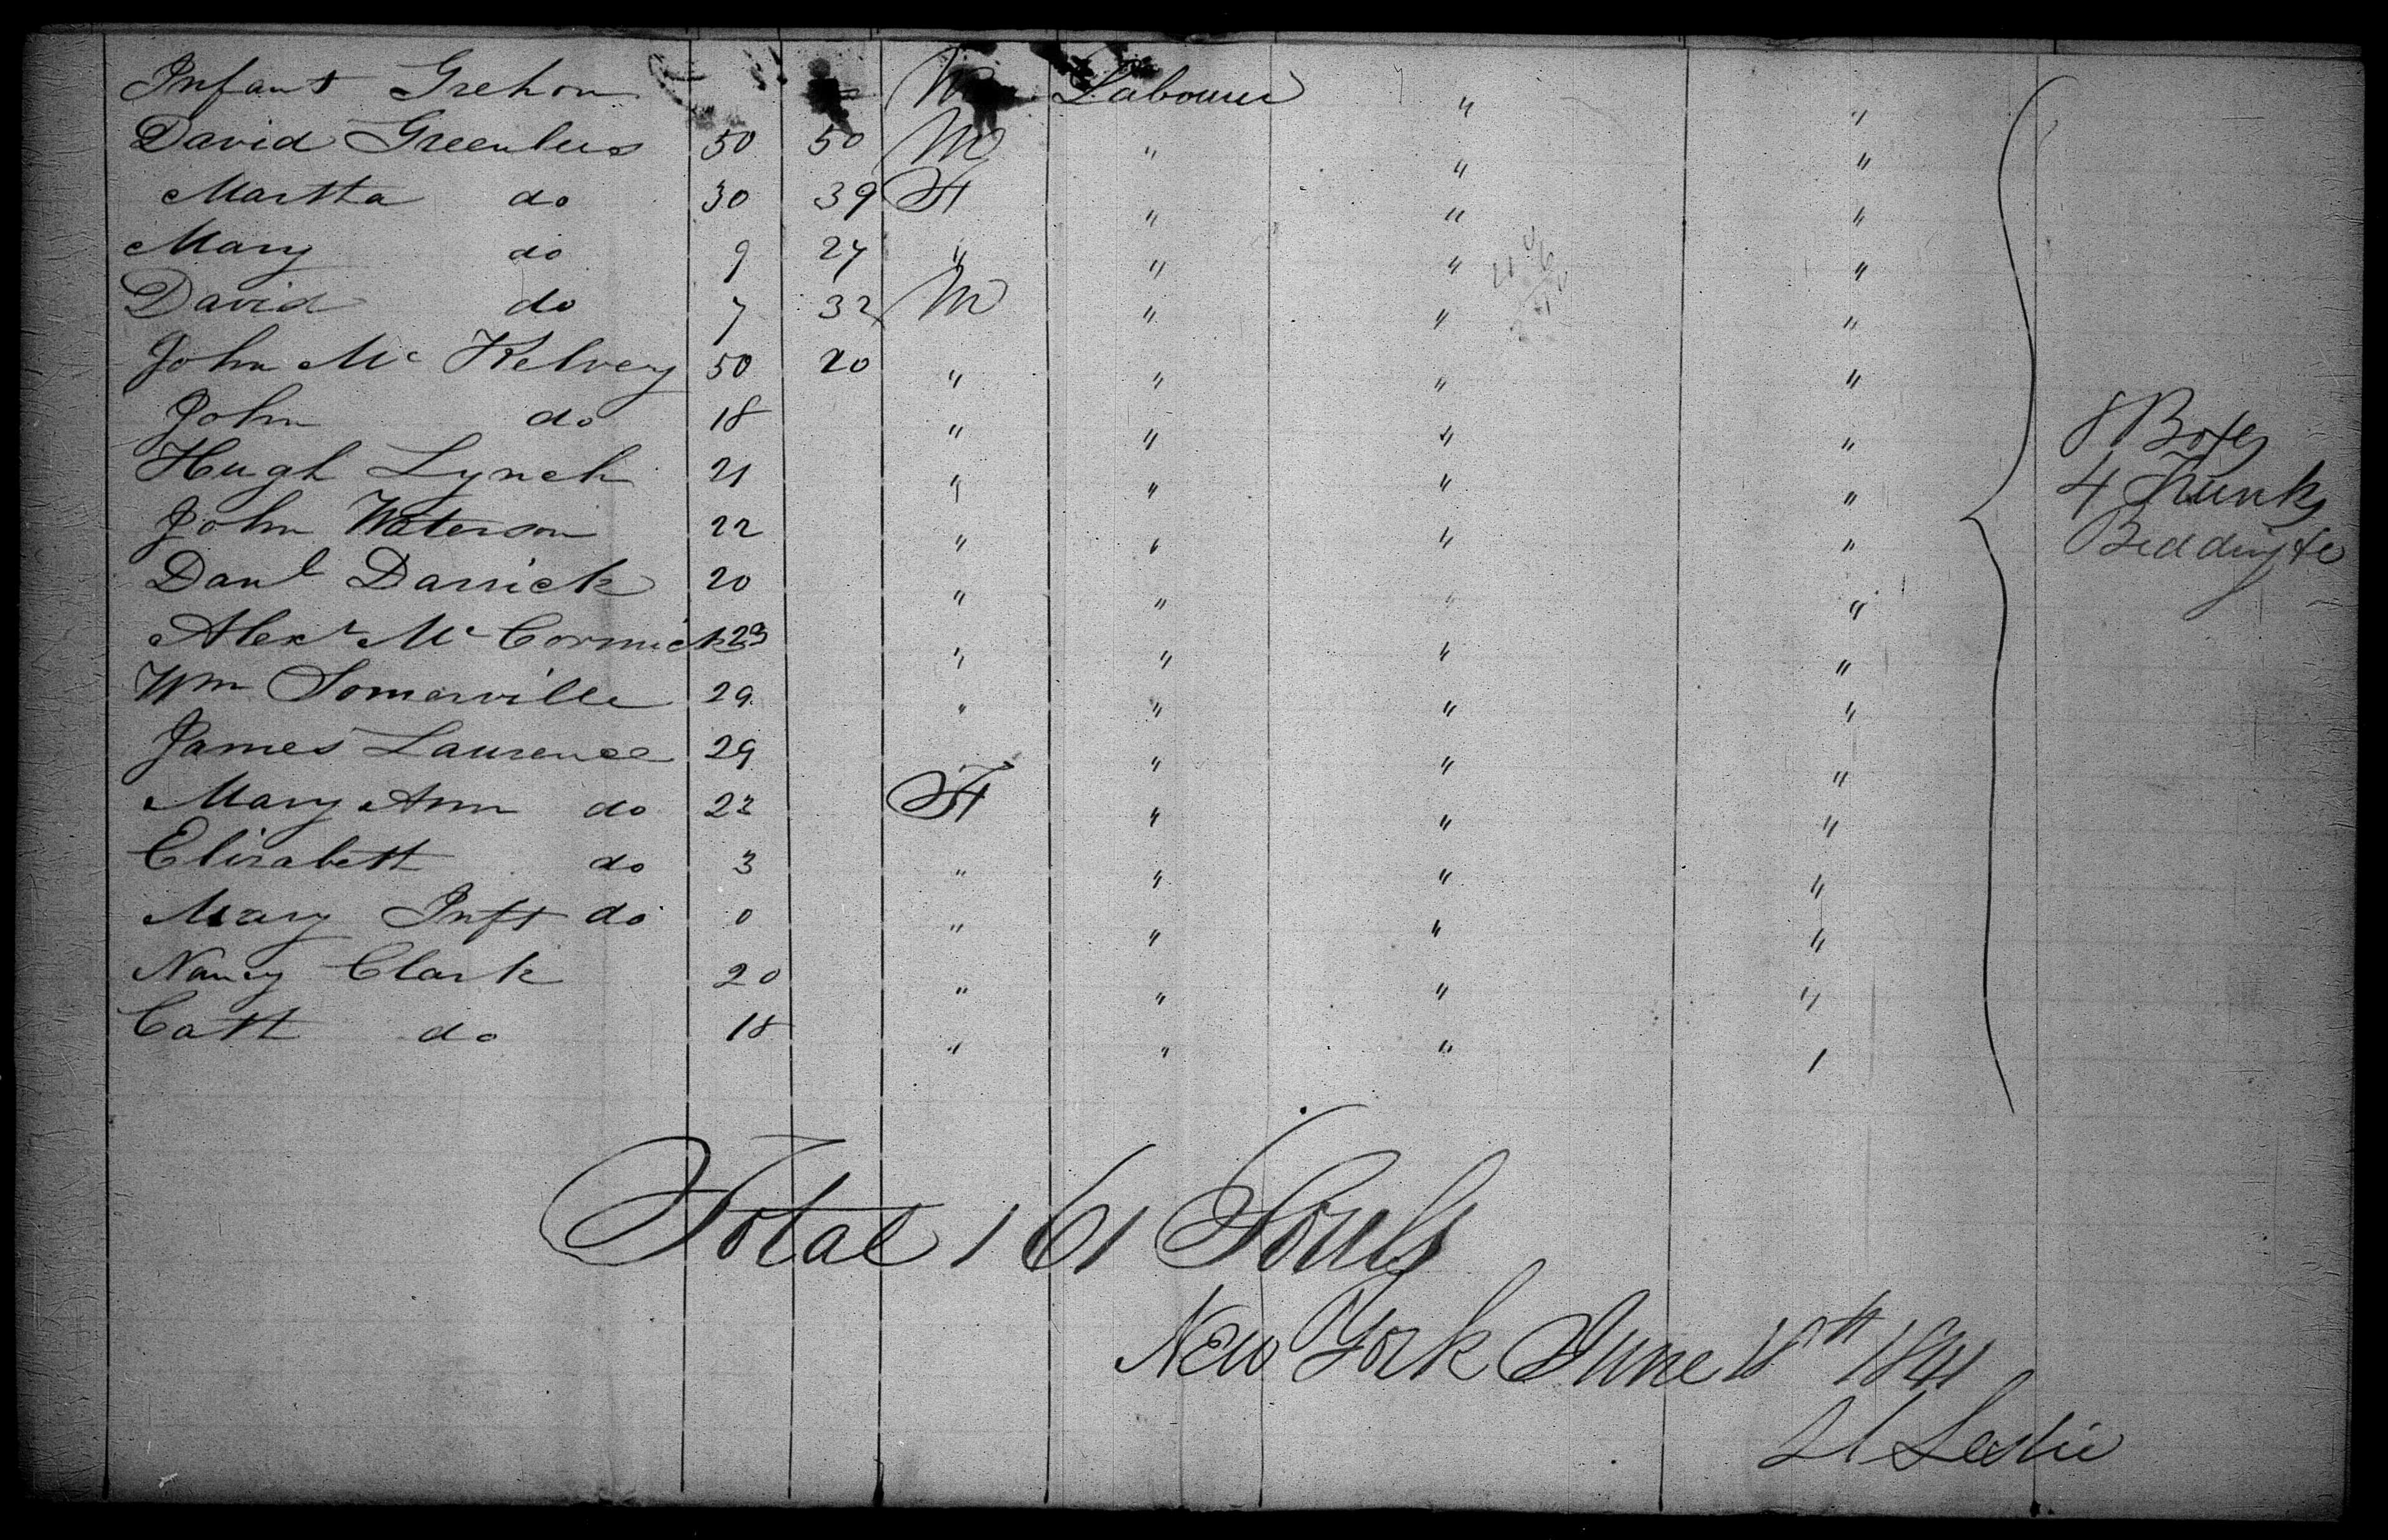 Infant Grehon M Labourer " "
David Greenlees 50 50 M " " "
Martha do 30 39 F " " "
Mary do 9 27 " " " "
David do 7 32 M " " "
John Mc Kelvey 50 20 " " " "
John do 18 " " " "
Hugh Lynch 21 " " " "
John Waterson 22 " " " "
Danl Darrick 20 " " " "
Alexr Mc Cormick 23 " " " "
Wm Somerville 29 " " " "
James Laurence 29 " " "
Mary Ann do 22 F " " "
Elizabeth do 3 " " " "
Mary Inft do 0 " " " "
Nancy Clark 20 " " " "
Cath do 18 " " " "
8 Boxes
4 Trunks
Bedding &c
Total 161 Souls
New York June 18th 1841
Leslie